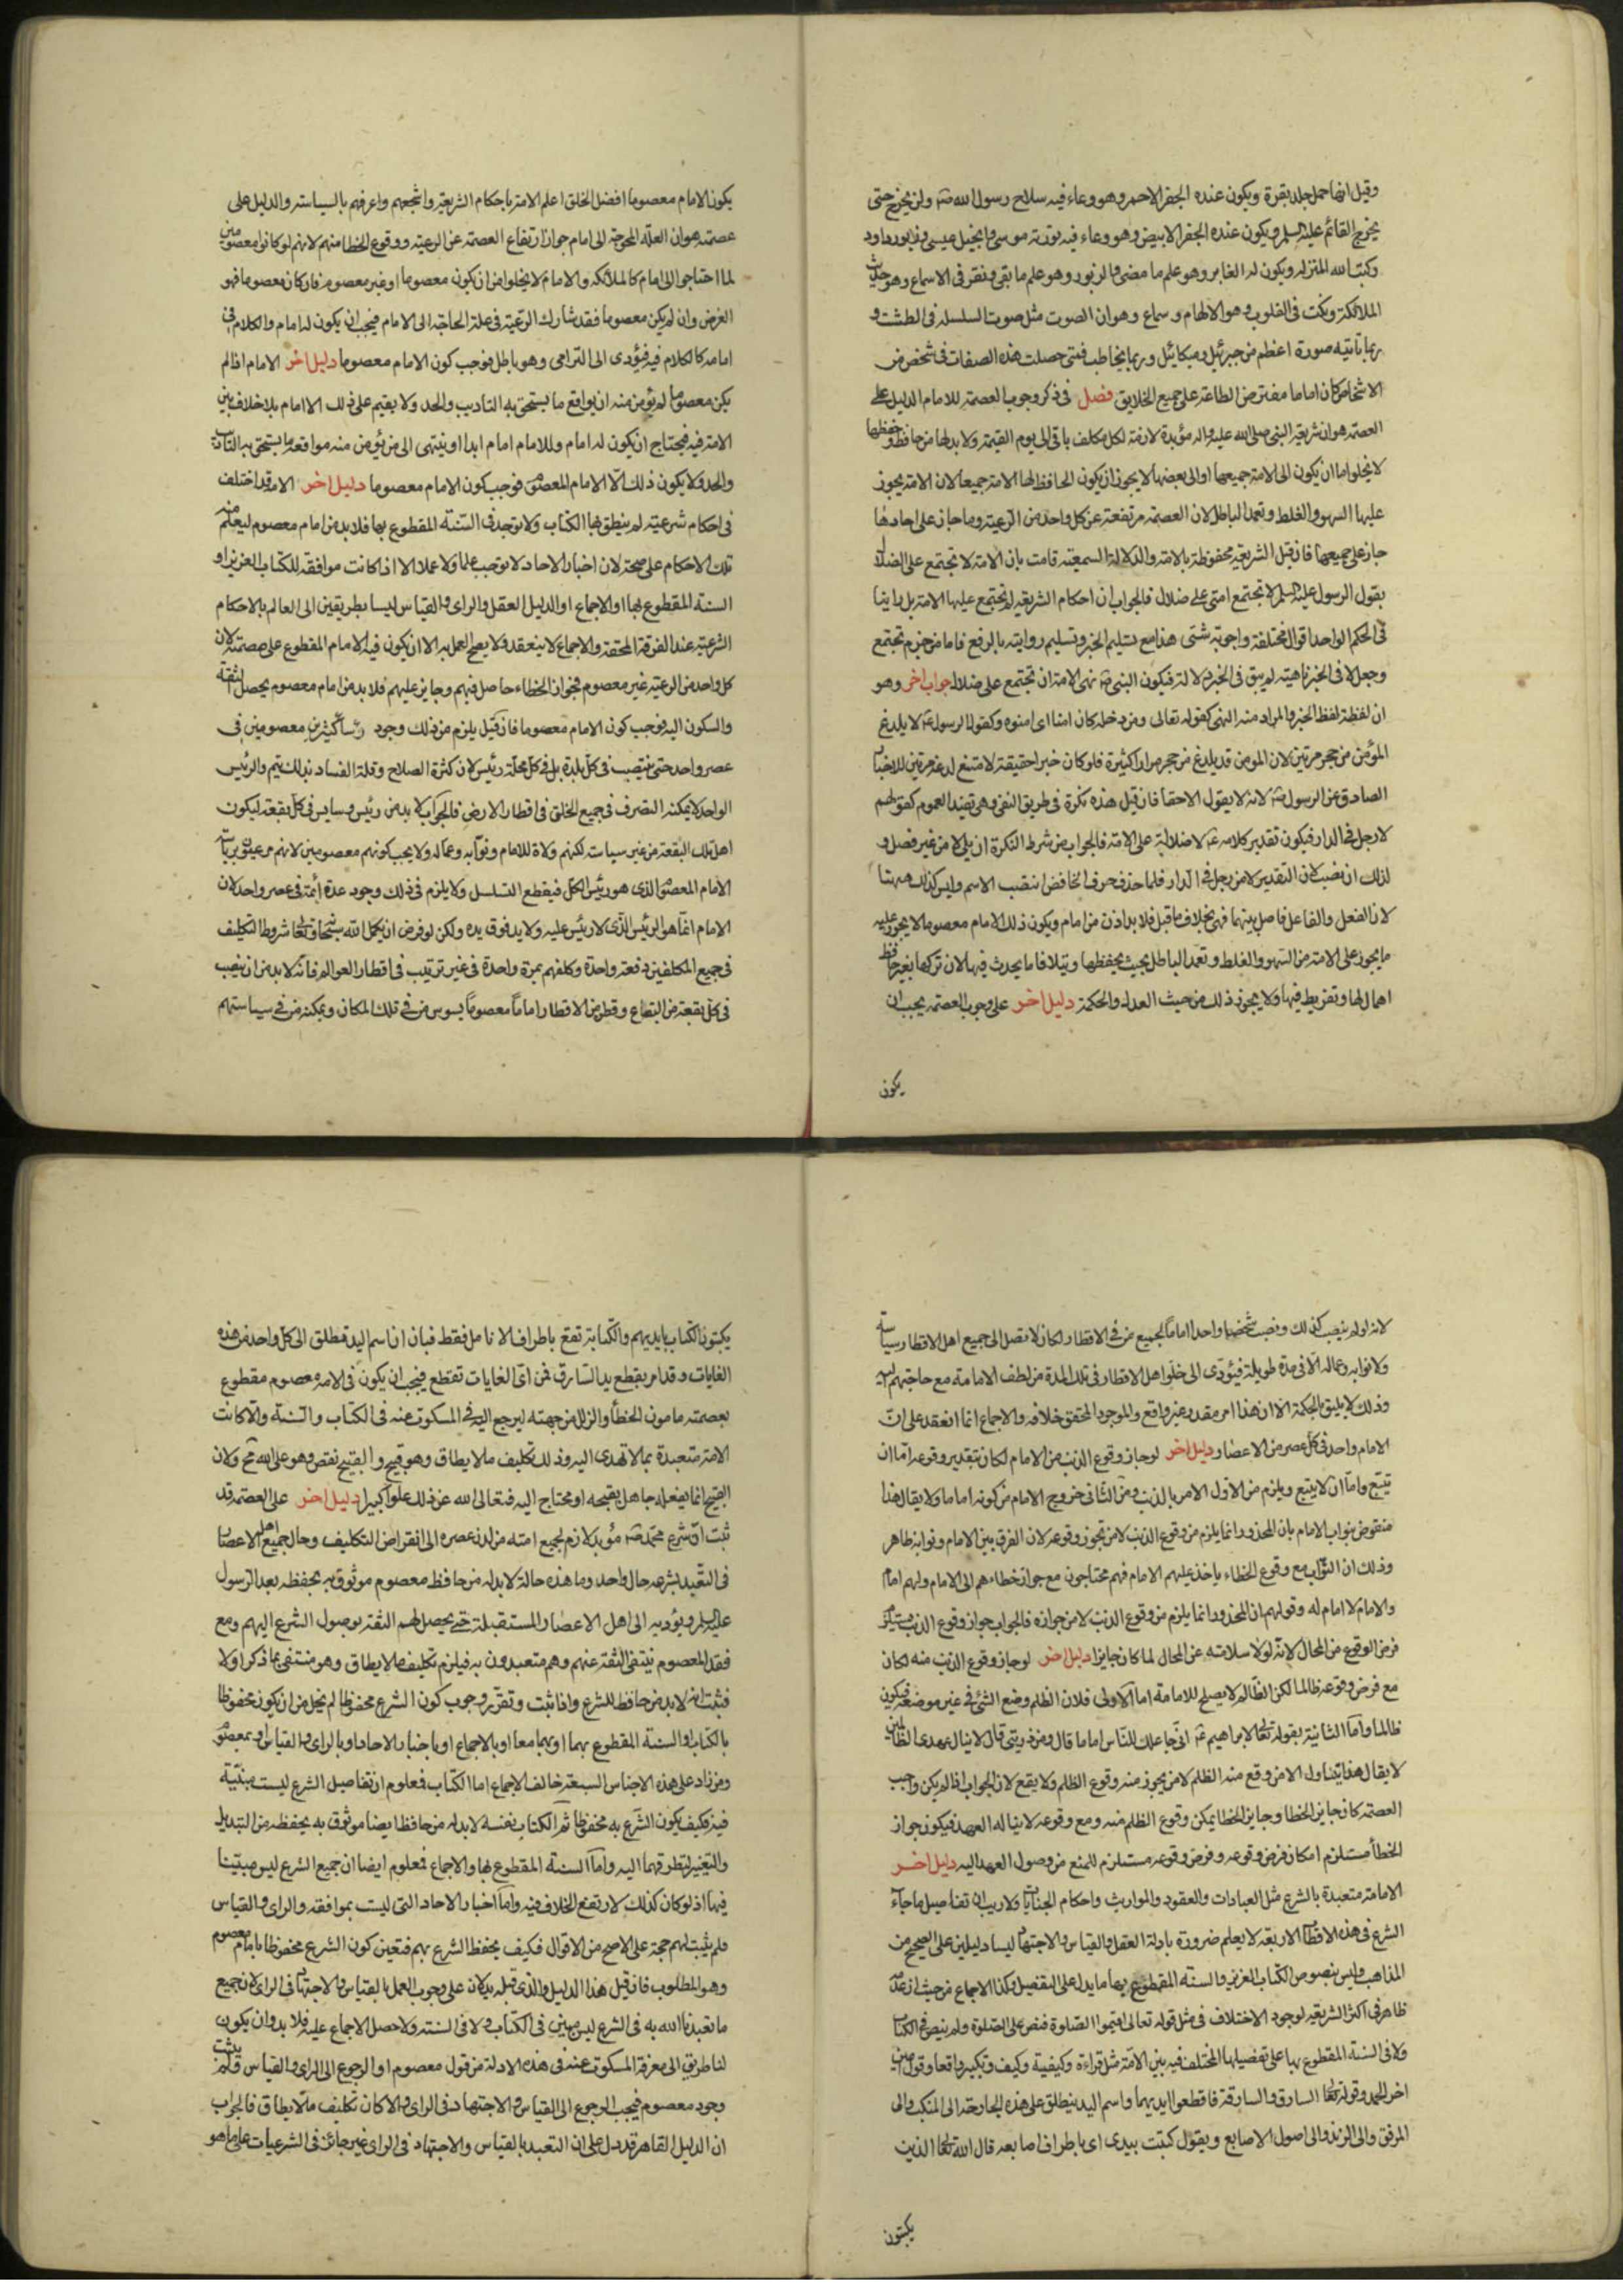 وقيل انها حمل جلد بقرة ويكون عنده الجفر الاحمر وهو وعاء فيه سلاح رسول الله ص ولن يخرج حتى
يخرج القائم عليه السلم ويكون عنده الجفر الابيض وهو وعاء فيه تورته موسى وانجيل عيسى وزابور داود
وكتب الله المنزله ويكون له الغابر وهو علم ما مضى والزبور وهو علم ما بقى ونقر فى الاسماع وهو حديث
الملائكة ونكت فى القلوب وهو الالهام وسماع وهو ان الصوت مثل صوت السلسله فى الطشت و
ربما تاتيه صورة اعظم من جبرئيل وميكائيل وربما يخاطب فمتى حصلت هذه الصفات فى شخص من
الاشخاص كان اماما مفترض الطاعة على جميع الخلايق فصل فى ذكر وجوب العصمة للامام الدليل على
العصمة هو ان شريعة النبى صلى الله عليه واله مؤبدة لازمة لكل مكلف باقى الى يوم القيمة ولا بد لها من حافظ وحفظها
لا يخلو اما ان يكون الى الامة جميعها او الى بعضها لا يجوز ان يكون الحافظ لها الامة جميعا لان الامة يجوز
عليها السهو والغلط وتعمد الباطل لان العصمة مرتفعة عن كل واحد من الرعية وما جاز على احادها
جاز على جميعها فان قيل الشريعة محفوظة بالامة والدلالة السمعية قامت بان الامة لا تجتمع على الضلال
بقول الرسول عليه السلم لا تجتمع امتى على ضلال فالجواب ان احكام الشريعة لم تجتمع عليها الامة بل راينا
فى الحكم الواحد اقوال مختلفة واجوبة شتى هذا مع تسليم الخبر وتسليم روايته بالرفع فاما من جزم تجتمع
وجعل لا فى الخبر ناهية لم يبق فى الخبر دلالة فيكون النبى ص نهى الامة ان تجتمع على ضلال جواب اخر وهو
ان لفظة لفظ الخبر والمراد منه النهى كقوله تعالى ومن دخله كان امنا اى امنوه وكقول الرسول ع لا يلدغ
المؤمن من جحر مرتين لان المؤمن قد يلدغ من جحر مرارا كثيرة فلو كان خبرا حقيقة لامتنع لدغه مرتين للاخبار
الصادق عن الرسول ص لانه لا يقول الا حقا فان قيل هذه نكرة فى طريق النفى وهى تفيد العموم كقولهم
لا رجل فى الدار فيكون تقدير كلامه ع لا ضلالة على الامة فالجواب من شرط النكرة ان يلى لا من غير فصل و
لذلك ان نصب لان التقدير لا من رجل فى الدار فلما حذف حرف الخافض انتصب الاسم وليس كذلك ههنا
لان الفعل والفاعل فاصل بينهما فهى بخلاف ما قيل فلا بد اذن من امام ويكون ذلك الامام معصوما لا يجوز عليه
ما يجوز على الامة من السهو والغلط وتعمد الباطل بحيث يحفظها ويتلافا ما يحدث فيها لان تركها بغير حافظ
اهمال لها وتفريط فيها ولا يجوز ذلك من حيث العدل والحكمة دليل اخر على وجوب العصمة يجب ان
يكون
يكون الامام معصوما افضل الخلق اعلم الامة باحكام الشريعة واشجعهم واعرفهم بالسياسة والدليل على
عصمته هو ان العلة المحوجة الى امام جواز ارتفاع العصمة عن الرعية ووقوع الخطا منهم لانهم لو كانوا معصومين
لما احتاجوا الى امام كالملائكه والامام لا يخلوا من ان يكون معصوما او غير معصوم فان كان معصوما فهو
الغرض وان لم يكن معصوما فقد شارك الرعية فى علة الحاجة الى الامام فيجب ان يكون له امام والكلام فى
امامه كالكلام فيه فيؤدى الى الترامى وهو باطل فوجب كون الامام معصوما دليل اخر الامام اذا لم
يكن معصوما لم يؤمن منه ان يواقع ما يستحق به التاديب والحد ولا يقيم على ذلك الا امام بلا خلاف بين
الامة فيه فيحتاج ان يكون له امام وللامام امام ابدا او ينتهى الى من يؤمن منه مواقعة ما يستحق به التاديب
والحد ولا يكون ذلك الا الامام المعصوم فوجب كون الامام معصوما دليل اخر الامة قد اختلف
فى احكام شرعية لم ينطق بها الكتاب ولا توجد فى السنة المقطوع بها فلا بد من امام معصوم ليعلم منه
تلك الاحكام على صحة لان اخبار الاحاد لا توجب علما ولا عملا الا اذا كانت موافقة للكتاب العزيز او
السنة المقطوع بها او الاجماع او الدليل العقل والراى والقياس ليسا بطريقين الى العالم بالاحكام
الشرعية عند الفرقة المحقة والاجماع لا ينعقد ولا يصح العمل به الا ان يكون فيه الامام المقطوع على عصمته لان
كل واحد من الرعية غير معصوم فجواز الخطاء حاصل فيهم وجايز عليهم فلا بد من امام معصوم يحصل الثقة
والسكون اليه فوجب كون الامام معصوما فان قيل يلزم من ذلك وجود رؤسا كثيرين معصومين فى
عصر واحد حتى ينتصب فى كل بلدة بل فى كل محلة رئيس لان كثرة الصلاح وقلة الفساد بذلك يتم والرئيس
الواحد لا يمكنه التصرف فى جميع الخلق فى اقطار الارض فالجواب لا بد من رئيس وسايس فى كل بقعة ليكون
اهل تلك البقعة من غير سياسة لكنهم ولاة للامام ونوابه وعماله ولا يجب كونهم معصومين لانهم مرعيون برياسة
الامام المعصوم الذى هو رئيس الكل فيقطع التسلسل ولا يلزم فى ذلك وجود عدة ائمة فى عصر واحد لان
الامام انما هو الرئيس الذى لا رئيس عليه ولا يد فوق يده ولكن لو فرض ان يكمل الله سبحانه وتعالى شروط التكليف
فى جميع المكلفين دفعة واحدة وكلفهم بمرة واحدة فى غير ترتيب فى اقطار العوالم فانه لا بد من ان ينصب
فى كل بقعة من البقاع وقطر من الاقطار اماما معصوما يسوس من فى تلك المكان ويمكنه من فى سياستهم
لانه لو لم ينصب كذلك ونصب شخصا واحدا اماما لجميع من فى الاقطار لكان لا تصل الى جميع اهل الاقطار سياسته
ولا نوابه وعماله الا فى مدة طويلة فيؤدى الى خلو اهل الاقطار فى تلك المدة من لطف الامامة مع حاجتهم اليه
وذلك لا يليق بالحكمة الا ان هذا امر مقدر وغير واقع والموجود المحقق خلافه والاجماع انما انعقد على ان
الامام واحد فى كل عصر من الاعصار دليل اخر لو جاز وقوع الذنب من الامام لكان بتقدير وقوعه اما ان
يتبع واما ان لا يتبع ويلزم من الاول الامر بالذنب ومن الثانى خروج الامام من كونه اماما ولا يقال هذا
منقوض بنواب الامام بان المحذور انما يلزم من وقوع الذنب لا من تجوز وقوعه لان الفرق بين الامام ونوابه ظاهر
وذلك ان النواب مع وقوع الخطاء ياخذ عليهم الامام فهم محتاجون مع جواز خطاءهم الى الامام ولهم امام
والامام لا امام له وقولهم ان المحذور انما يلزم من وقوع الذنب لا من جوازه فالجواب جواز وقوع الذنب يستلزم
فرض الوقوع من المحال لانه لولا سلامته عن المحال لما كان جايزا دليل اخر لو جاز وقوع الذنب منه لكان
مع فرض وقوعه ظالما لكن الظالم لا يصلح للامامة اما الاولى فلان الظلم وضع الشئ فى غير موضعه فيكون
ظالما واما الثانية بقوله تعالى لابراهيم ع انى جاعلك للناس اماما قال ومن ذريتى قال لا ينال عهدى الظالمين
لا يقال هذا يتناول الامن وقع منه الظلم لا من يجوز منه وقوع الظلم ولا يقع لان الجواب اذا لم يكن واجب
العصمة كان جايز الخطا وجايز الخطا يمكن وقوع الظلم منه ومع وقوعه لا يناله العهد فيكون جواز
الخطأ مستلزم امكان فرض وقوعه وفرض وقوعه مستلزم للمنع من وصول العهد اليه دليل اخر
الامامة متعبدة بالشرع مثل العبادات والعقود والمواريث واحكام الجنايات ولا ريب ان تفاصيل ما جاء
الشرع فى هذه الاقطاب الاربعة لا يعلم ضرورة بادلة العقل والقياس والاجتهاد ليسا دليلين على الصحيح من
المذاهب وليس بنصوص الكتاب العزيز والسنة المقطوع بها ما يدل على التفصيل وكذا الاجماع من حيث ان عدمه
ظاهر فى اكثر الشريعة لوجود الاختلاف فى مثل قوله تعالى اقيموا الصلوة فنص على الصلوة ولم ينص فى الكتاب
ولا فى السنة المقطوع بها على تفصيلها المختلف فيه بين الامة مثل قراءة وكيفية وكيف وتكبير واقعا وقول امين
اخر الحمد وقوله تعالى السارق والسارقة فاقطعوا ايديهما واسم اليد ينطلق على هذه الجارحة الى المنكب والى
المرفق والى الزند والى اصول الاصابع ويقول كتبت بيدى اى باطراف اصابعه قال الله تعالى الذين
يكتبون
يكتبون الكتاب بايديهم والكتابة تقع باطراف الانامل فقط فبان ان اسم اليد مطلق الى كل واحد من هذه
الغايات وقد امر بقطع يد السارق فمن اى الغايات تقتطع فيجب ان يكون فى الامة معصوم مقطوع
بعصمته مامون الخطأ والزلل من جهته ليرجع اليه فى المسكوت عنه فى الكتاب والسنة والا كانت
الامة متعبدة بما لا تهدى اليه وذلك تكليف ما لا يطاق وهو قبيح والقبيح نقص وهو على الله مح ولان
القبيح انما يفعله جاهل بقبحه او محتاج اليه فتعالى الله عن ذلك علوا كبيرا دليل اخر على العصمة قد
ثبت ان شرع محمد ص مؤبد لازم لجميع امته من لدن عصره الى انقراض التكليف وحال جميع اهل الاعصار
فى التعبد بشرعه حال واحد وما هذه حالة لا بد له من حافظ معصوم موثوق به يحفظه بعد الرسول
عليه السلم ويؤديه الى اهل الاعصار المستقبلة حتى يحصل لهم الثقة بوصول الشرع اليهم ومع
فقد المعصوم ينتفى الثقة عنهم وهم متعبدون به فيلزم تكليف ما لا يطاق وهو منتفى بما ذكر اولا
فثبت انه لا بد من حافظ للشرع واذا ثبت وتقرر وجوب كون الشرع محفوظا لم يخل من ان يكون محفوظا
بالكتاب او السنة المقطوع بهما او بهما معا او بالاجماع او باخبار الاحاد او بالراى والقياس او بمعصوم
ومن زاد على هذه الاجناس السبعة خالف الاجماع اما الكتاب فمعلوم ان تفاصيل الشرع ليست مبينة
فيه فكيف يكون الشرع به محفوظا ثم الكتاب بنفسه لا بد له من حافظ ايضا موثوق به يحفظه من التبديل
والتغير لتطرقهما اليه واما السنة المقطوع بها والاجماع فمعلوم ايضا ان جميع الشرع ليس مبينا
فيها اذ لو كان كذلك لارتفع الخلاف فيه واما اخبار الاحاد التى ليست بموافقه والراى والقياس
فلم يثبت لهم حجة على الاصح من الاقوال فكيف يحفظ الشرع بهم فتعين كون الشرع محفوظا بامام معصوم
وهو المطلوب فان قيل هذا الدليل والذى قبله يدلان على وجوب العمل بالقياس والاجتهاد فى الراى لان جميع
ما تعبدنا الله به فى الشرع ليس مبين فى الكتاب ولا فى السنة ولا حصل الاجماع عليه فلا بد وان يكون
لنا طريق الى معرفة المسكوت عنه فى هذه الادلة من قول معصوم او الرجوع الى الراى والقياس فلم يثبت
وجود معصوم فيجب الرجوع الى القياس والاجتهاد فى الراى والا كان تكليف ما لا يطاق فالجواب
ان الدليل القاهر قد دل على ان التعبد بالقياس والاجتهاد فى الراى غير جائز فى الشرعيات على ما هو